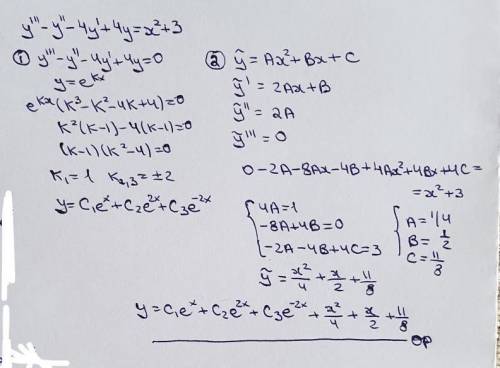 y''' - y'' - 4y' + 4y = x² + 3
① y''' - y'' - 4y' + 4y = 0
y = e^{kx}
e^{kx}(k³ - k² - 4k + 4) = 0
k²(k-1) - 4(k-1) = 0
(k-1)(k² - 4) = 0
k₁ = 1 k₂,₃ = ±2
y = C₁eˣ + C₂e^{2x} + C₃e^{-2x}
② ỹ = Ax² + Bx + C
ỹ' = 2Ax + B
ỹ'' = 2A
ỹ''' = 0
0 - 2A - 8Ax - 4B + 4Ax² + 4Bx + 4C =
= x² + 3
{ 4A = 1
-8A + 4B = 0
-2A - 4B + 4C = 3
{ A = 1/4
B = 1/2
C = 11/8
ỹ = x²/4 + x/2 + 11/8
y = C₁eˣ + C₂e^{2x} + C₃e^{-2x} + x²/4 + x/2 + 11/8
op